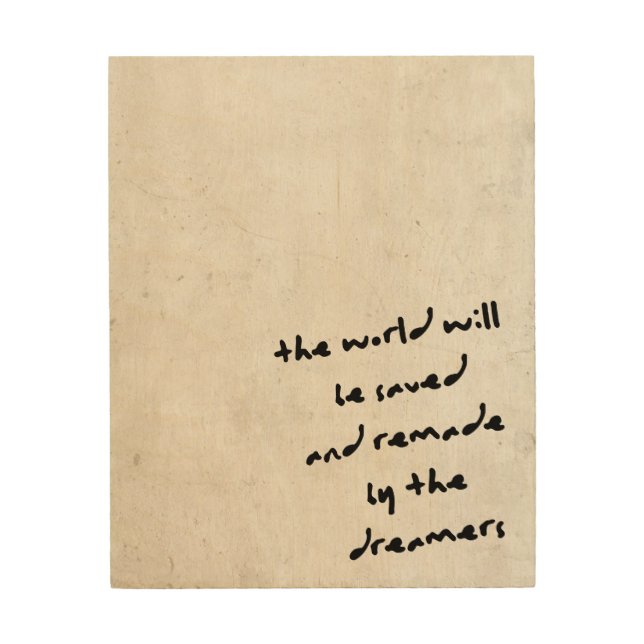 the world will
be saved
and remade
by the
dreamers